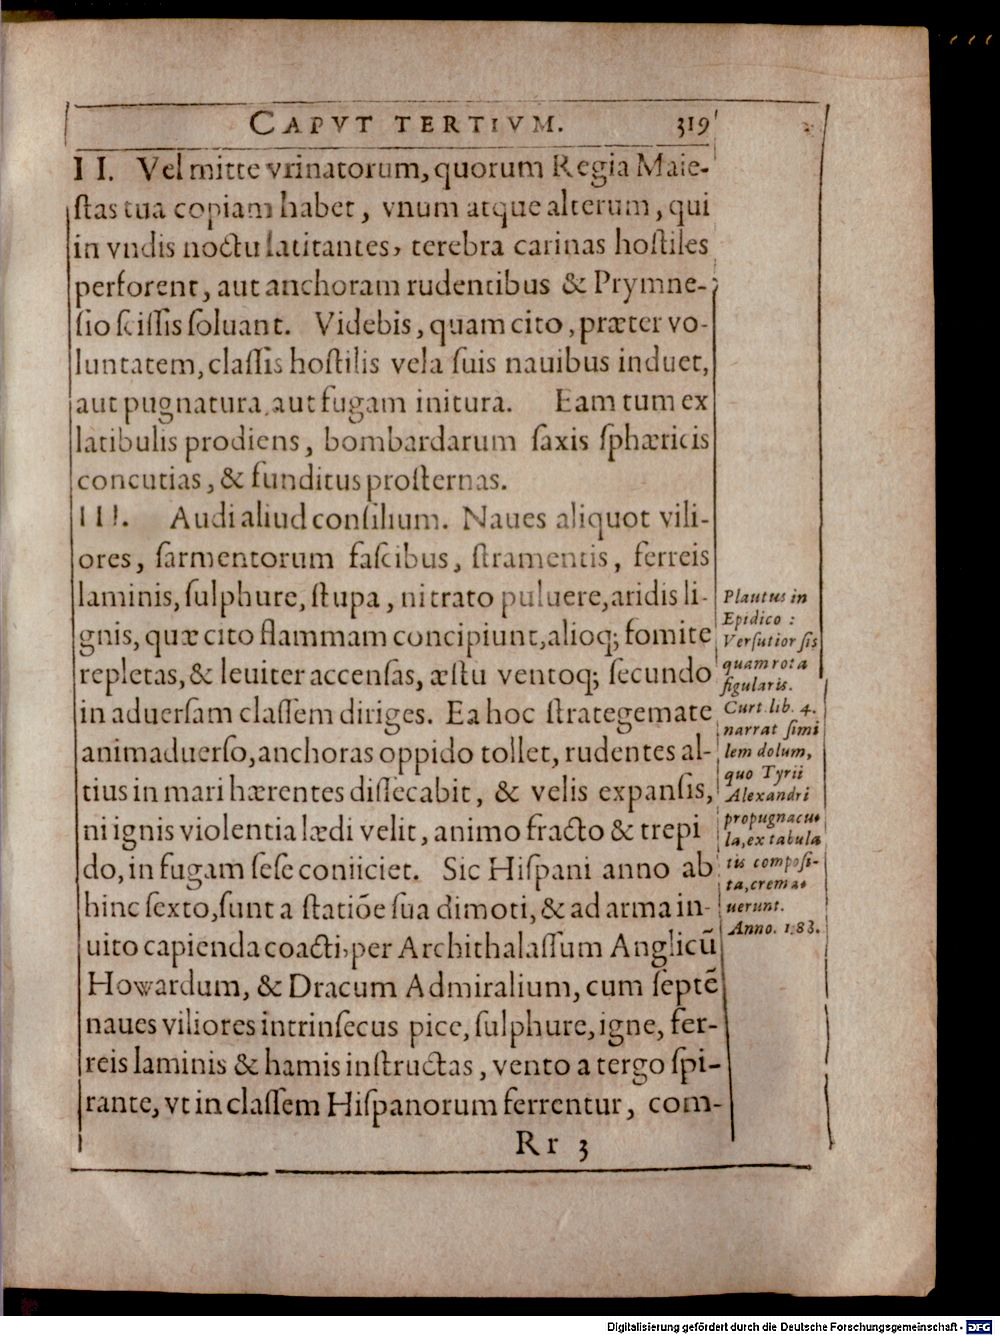 CAPVT TERTIVM. 319
II. Vel mitte vrinatorum, quorum Regia Maie-
ſtas tua copiam habet, vnum atque alterum, qui
in vndis noctu latitantes, terebra carinas hoſtiles
perforent, aut anchoram rudentibus & Prymne-
ſio ſciſſis ſoluant. Videbis, quam cito, præter vo-
luntatem, claſſis hoſtilis vela ſuis nauibus induet,
aut pugnatura, aut fugam initura. Eam tum ex
latibulis prodiens, bombardarum ſaxis ſphæricis
concutias, & funditus proſternas.
III. Audi aliud conſilium. Naues aliquot vili-
ores, ſarmentorum faſcibus, ſtramentis, ferreis
laminis, ſulphure, ſtupa, nitrato puluere, aridis li-
gnis, quæ cito flammam concipiunt, alioq; fomite
repletas, & leuiter accenſas, æſtu ventoq; ſecundo
in aduerſam claſſem diriges. Ea hoc ſtrategemate
animaduerſo, anchoras oppido tollet, rudentes al-
tius in mari hærentes diſſecabit, & velis expanſis,
ni ignis violentia lædi velit, animo fracto & trepi
do, in fugam ſeſe coniiciet. Sic Hiſpani anno ab
hinc ſexto, ſunt a ſtatiōe ſua dimoti, & ad arma in-
uito capienda coacti, per Archithalaſſum Anglicū
Howardum, & Dracum Admiralium, cum ſeptē
naues viliores intrinſecus pice, ſulphure, igne, fer-
reis laminis & hamis inſtructas, vento a tergo ſpi-
rante, vt in claſſem Hiſpanorum ferrentur, com-
Rr 3
Plautus in
Epidico :
Verſutior ſis
quam rota
figularis.
Curt. lib. 4.
narrat ſimi
lem dolum,
quo Tyrii
Alexandri
propugnacu-
la, ex tabula
tis compoſi-
ta, crema-
uerunt.
Anno.
Digitalisierung gefördert durch die Deutsche Forschungsgemeinschaft - DFG